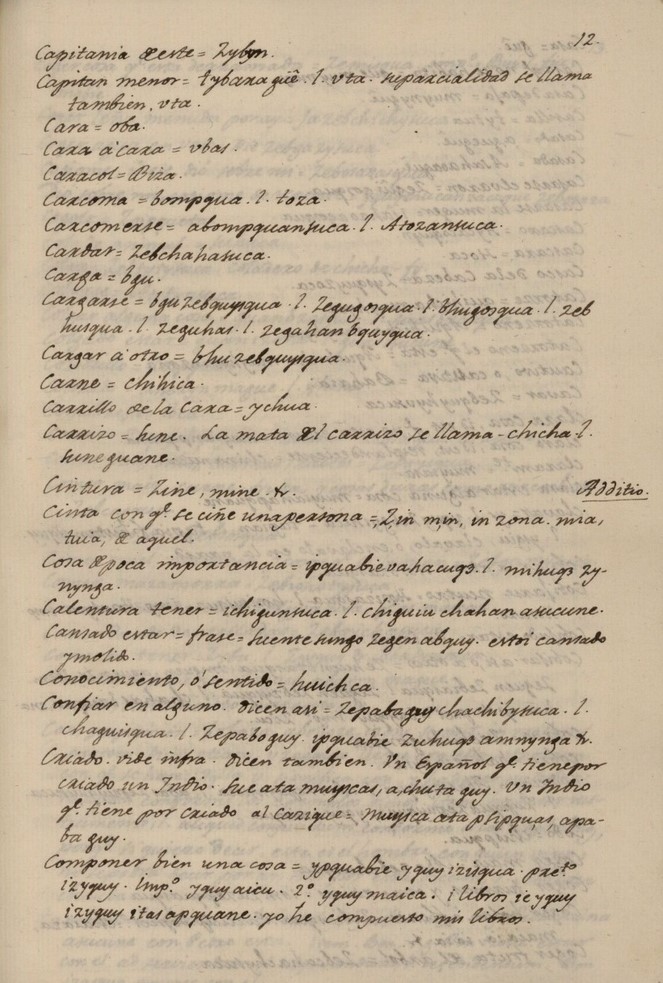 12.
Capitania de este = Zybyn.
Capitan menor = tybaragûê . l . vta . su parcialidad se llama
tambien, vta .
Cara = oba.
Cara à cara = vbas .
Caracol = Biza.
Carcoma = bompqua . l . toza .
Carcomerse = abompquansuca . l . Atozansuca .
Cardar = zebchahasuca .
Carga = bgu .
Cargarse = bgu zebquysqua . l . zegugosqua . l . bhugosqua . l . zeb
husqua . l . zeguhas . l . zegahan bquyqua .
Cargar à otro = bhu zebquysqua .
Carne = chihica .
Carrillo de la Cara = ychua .
Carrizo = sune . La mata del carrizo se llama - chicha . l .
sune quane .
Cintura = Zine, mine . &.
Additio.
Cinta con q.e se ciñe una persona = Zin min, in zona . mia,
tuia, de aquel.
Cosa de poca importancia = ipquabie vahacuqȝ . l . mihuqȝ zy-
nynga .
Calentura tener = ichigunsuca . l . chiguiu chahan asucune .
Cansado estar = frase = suente sungo zegen abquy . estoi cansado
y molido .
Conocimiento, ó sentido = huichca .
Confiar en alguno . dicen asi = zepabaguy chachibysuca . l .
chaguisqua . l . Zepaboguy . ipquabie zuhuqȝ amnynga &.
Criado . vide infra . dicen tambien . Un Español q.e tiene por
criado un Indio . sue ata muyscas, a, chuta guy . Un Indio
q.e tiene por criado al Cazique = muysca ata psipquas, apa-
ba guy .
Componer bien una cosa = ypquabie yquy izisqua . pret.o
izyquy . Imp.o yquy aicu . 2.o yquy maica . i libros ic yquy
izyquy itas apquane . yo he compuesto mis libros .